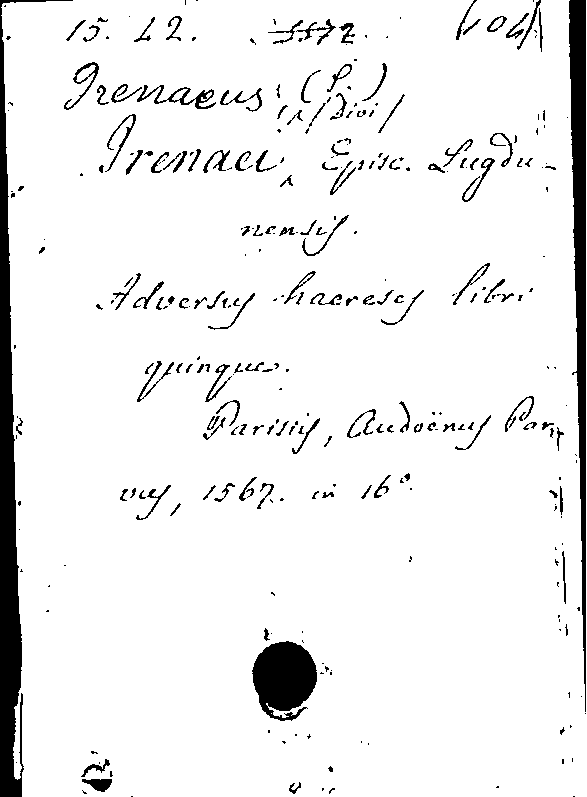 15. L2. 5572 (104)
Irenaeus, (S.)
/Divi/
Irenaei, Episc. Lugdu-
nensis.
Adversus haereses libri
quinque.
Parisiis, Audoënus Par-
vus, 1567. in 16°.